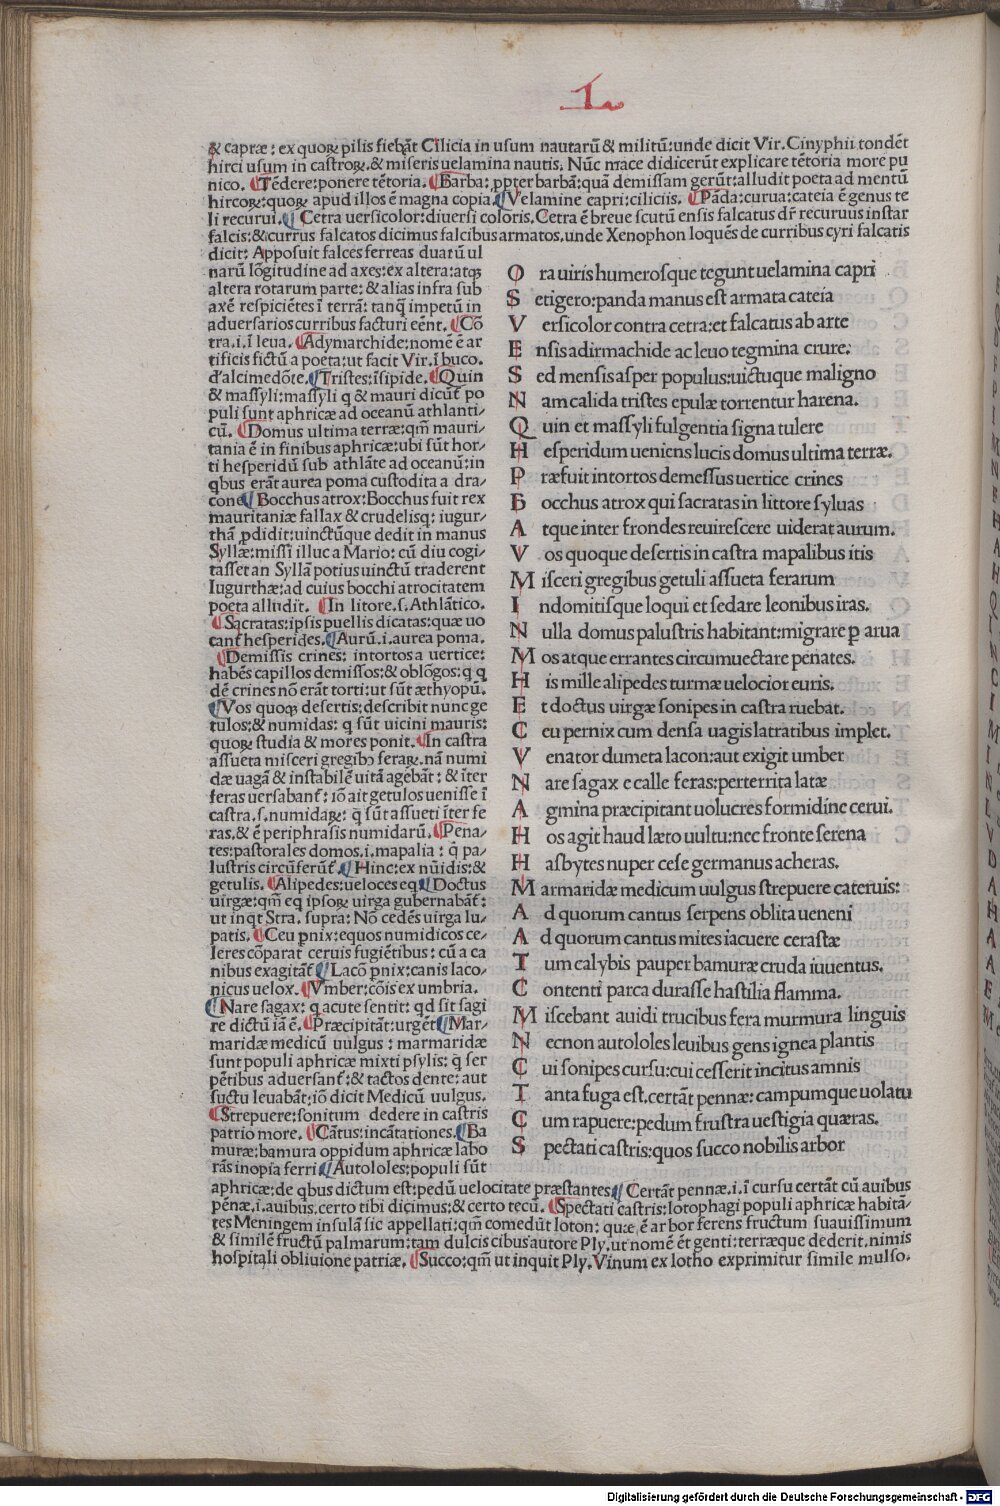 1
& capræ: ex quoꝝ pilis fiebāt Cilicia in usum nautarū & militū: unde dicit Vir. Cinyphii tondēt
hirci usum in castroꝝ. & miseris uelamina nautis. Nūc mace didicerūt explicare tētoria more pu
nico. ¶Tēdere: ponere tētoria. ¶Barba: ꝓpter barbā: quā demissam gerūt: alludit poeta ad mentū
hircoꝝ: quoꝝ apud illos ē magna copia. ¶Velamine capri: ciliciis. ¶Pāda: curua: cateia ē genus te
li recurui. ¶ Cetra uersicolor: diuersi coloris. Cetra ē breue scutū ensis falcatus dr̄ recuruus instar
falcis: & currus falcatos dicimus falcibus armatos. unde Xenophon loquēs de curribus cyri falcatis
dicit: Apposuit falces ferreas duarū ul
narū lōgitudine ad axes: ex altera: atqꝫ
altera rotarum parte: & alias infra sub
axē respiciētes ī terrā: tanq̄ impetū in
aduersarios curribus facturi eēnt. ¶Cō
tra. i. ī leua. ¶Adymarchide: nomē ē ar
tificis fictū a poeta: ut facit Vir. ī buco.
d'alcimedōte. ¶Tristes: īsipide. ¶Quin
& massyli: massyli q & mauri dicūt̄ po
puli sunt aphricæ ad oceanū athlanti/
cū. ¶Domus ultima terræ: qm̄ mauri/
tania ē in finibus aphricæ: ubi sūt hor/
ti hesperidū sub athlāte ad oceanū: in
qbus erāt aurea poma custodita a dra/
cone ¶Bocchus atrox: Bocchus fuit rex
mauritaniæ fallax & crudelisq: iugur/
thā ꝓdidit: uinctūque dedit in manus
Syllæ: missi illuc a Mario: cū diu cogi/
tasset an Syllā potius uinctū traderent
Iugurthæ: ad cuius bocchi atrocitatem
poeta alludit. ¶In litore. s. Athlātico.
¶Sacratas: ipsis puellis dicatas: quæ uo
cant̄ hesperides. ¶Aurū. i. aurea poma.
¶Demissis crines: intortos a uertice:
habēs capillos demissos: & oblōgos: q q
dē crines nō erāt torti: ut sūt æthyopū.
¶Vos quoqꝫ desertis: describit nunc ge
tulos: & numidas: q sūt uicini mauris:
quoꝝ studia & mores ponit. ¶In castra
assueta misceri gregibꝫ feraꝝ. nā numi
dæ uagā & instabilē uitā agebāt: & īter
feras uersabant̄: iō ait getulos uenisse ī
castra. s. numidaꝝ: q̄ sūt assueti īter fe
ras. & ē periphrasis numidarū. ¶Pena/
tes: pastorales domos. i. mapalia: q̄ pa/
lustris circūferūt̄. ¶Hinc: ex nūidis: &
getulis. ¶Alipedes: ueloces eq ¶Doctus
uirgæ: qm̄ eq ipsoꝝ uirga gubernabāt̄:
ut inqt Stra. supra: Nō cedēs uirga lu/
patis. ¶Ceu ꝑnix: equos numidicos ce/
leres cōparat ceruis fugiētibus: cū a ca
nibus exagitāt̄ ¶Lacō ꝑnix: canis laco/
nicus uelox. ¶Vmber: cōis ex umbria.
¶Nare sagax: q acute sentit: qd sit sagi
re dictū iā ē. ¶Præcipitāt: urgēt ¶Mar/
maridæ medicū uulgus: marmaridæ
sunt populi aphricæ mixti psylis: q ser
pētibus aduersant̄: & tactos dente: aut
suctu leuabāt: iō dicit Medicū uulgus.
¶Strepuere: sonitum dedere in castris
patrio more. ¶Cātus: incātationes. ¶Ba
muræ: bamura oppidum aphricæ labo
rās inopia ferri ¶Autololes: populi sūt
aphricæ: de qbus dictum est: pedū uelocitate præstantes ¶ Certāt pennæ. i. ī cursu certāt cū auibus
pēnæ. i. auibus. certo tibi dicimus: & certo tecū. ¶Spectati castris: lotophagi populi aphricæ habitā/
tes Meningem insulā sic appellati: qm̄ comedūt loton: quæ ē arbor ferens fructum suauissimum
& similē fructū palmarum: tam dulcis cibus autore Ply. ut nomē ēt genti: terræque dederit. nimis
hospitali obliuione patriæ. ¶Succo: qm̄ ut inquit Ply. Vinum ex lotho exprimitur simile mulso.
O ra uiris humerosque tegunt uelamina capri
S etigero: panda manus est armata cateia
V ersicolor contra cetra: et falcatus ab arte
E nsis adirmachide ac leuo tegmina crure:
S ed mensis asper populus: uictuque maligno
N am calida tristes epulæ torrentur harena.
Q uin et massyli fulgentia signa tulere
H esperidum ueniens lucis domus ultima terræ.
P ræfuit intortos demessus uertice crines
B occhus atrox qui sacratas in littore syluas
A tque inter frondes reuirescere uiderat aurum.
V os quoque desertis in castra mapalibus itis
M isceri gregibus getuli assueta ferarum
I ndomitisque loqui et sedare leonibus iras.
N ulla domus palustris habitant: migrare ꝑ arua
M os atque errantes circumuectare penates.
H is mille alipedes turmæ uelocior euris.
E t doctus uirgæ sonipes in castra ruebat.
C eu pernix cum densa uagis latratibus implet.
V enator dumeta lacon: aut exigit umber
N are sagax e calle feras: perterrita latæ
A gmina præcipitant uolucres formidine cerui.
H os agit haud læto uultu: nec fronte serena
H asbytes nuper cese germanus acheras.
M armaridæ medicum uulgus strepuere cateruis:
A d quorum cantus serpens oblita ueneni
A d quorum cantus mites iacuere cerastæ
T um calybis pauper bamuræ cruda iuuentus.
C ontenti parca durasse hastilia flamma.
M iscebant auidi trucibus fera murmura linguis
N ecnon autololes leuibus gens ignea plantis
C ui sonipes cursu: cui cesserit incitus amnis
T anta fuga est. certāt pennæ: campumque uolatu
C um rapuere: pedum frustra uestigia quæras.
S pectati castris: quos succo nobilis arbor
Digitalisierung gefördert durch die Deutsche Forschungsgemeinschaft - DFG